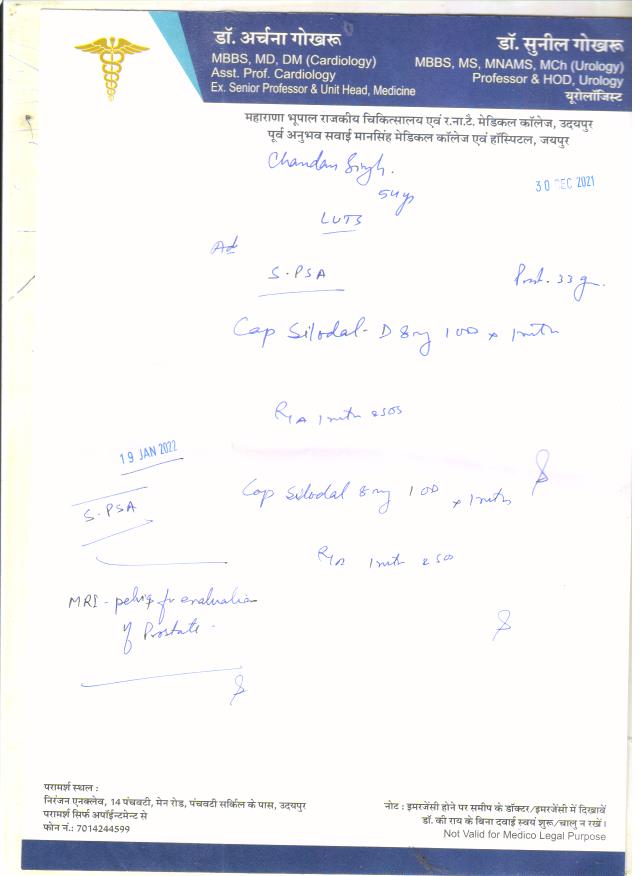 डॉ. अर्चना गोखरू
MBBS, MD, DM (Cardiology)
Asst. Prof. Cardiology
Ex. Senior Professor & Unit Head, Medicine
डॉ. सुनील गोखरू
MBBS, MS, MNAMS, MCh (Urology)
Professor & HOD, Urology
यूरोलॉजिस्ट
महाराणा भूपाल राजकीय चिकित्सालय एवं र.ना.टै. मेडिकल कॉलेज, उदयपुर
पूर्व अनुभव सवाई मानसिंह मेडिकल कॉलेज एवं हॉस्पिटल, जयपुर
Chandan Singh.
30 DEC 2021
54 ys
LUTS
Ad
S-PSA
Prost. 33 g.
Cap Silodal-D 8mg 1 OD x 1 mth
R/A 1 mth
19 JAN 2022
S-PSA
Cap Silodal 8 mg 1 OD x 1 mth
R/A 1 mth
MRI - pelvis for evaluation
of Prostate -
परामर्श स्थल :
निरंजन एनक्लेव, 14 पंचवटी, मेन रोड, पंचवटी सर्किल के पास, उदयपुर
परामर्श सिर्फ अपॉईन्टमेन्ट से
फोन नं.: 7014244599
नोट : इमरजेंसी होने पर समीप के डॉक्टर/इमरजेंसी में दिखावें
डॉ. की राय के बिना दवाई स्वयं शुरू/चालु न रखें।
Not Valid for Medico Legal Purpose